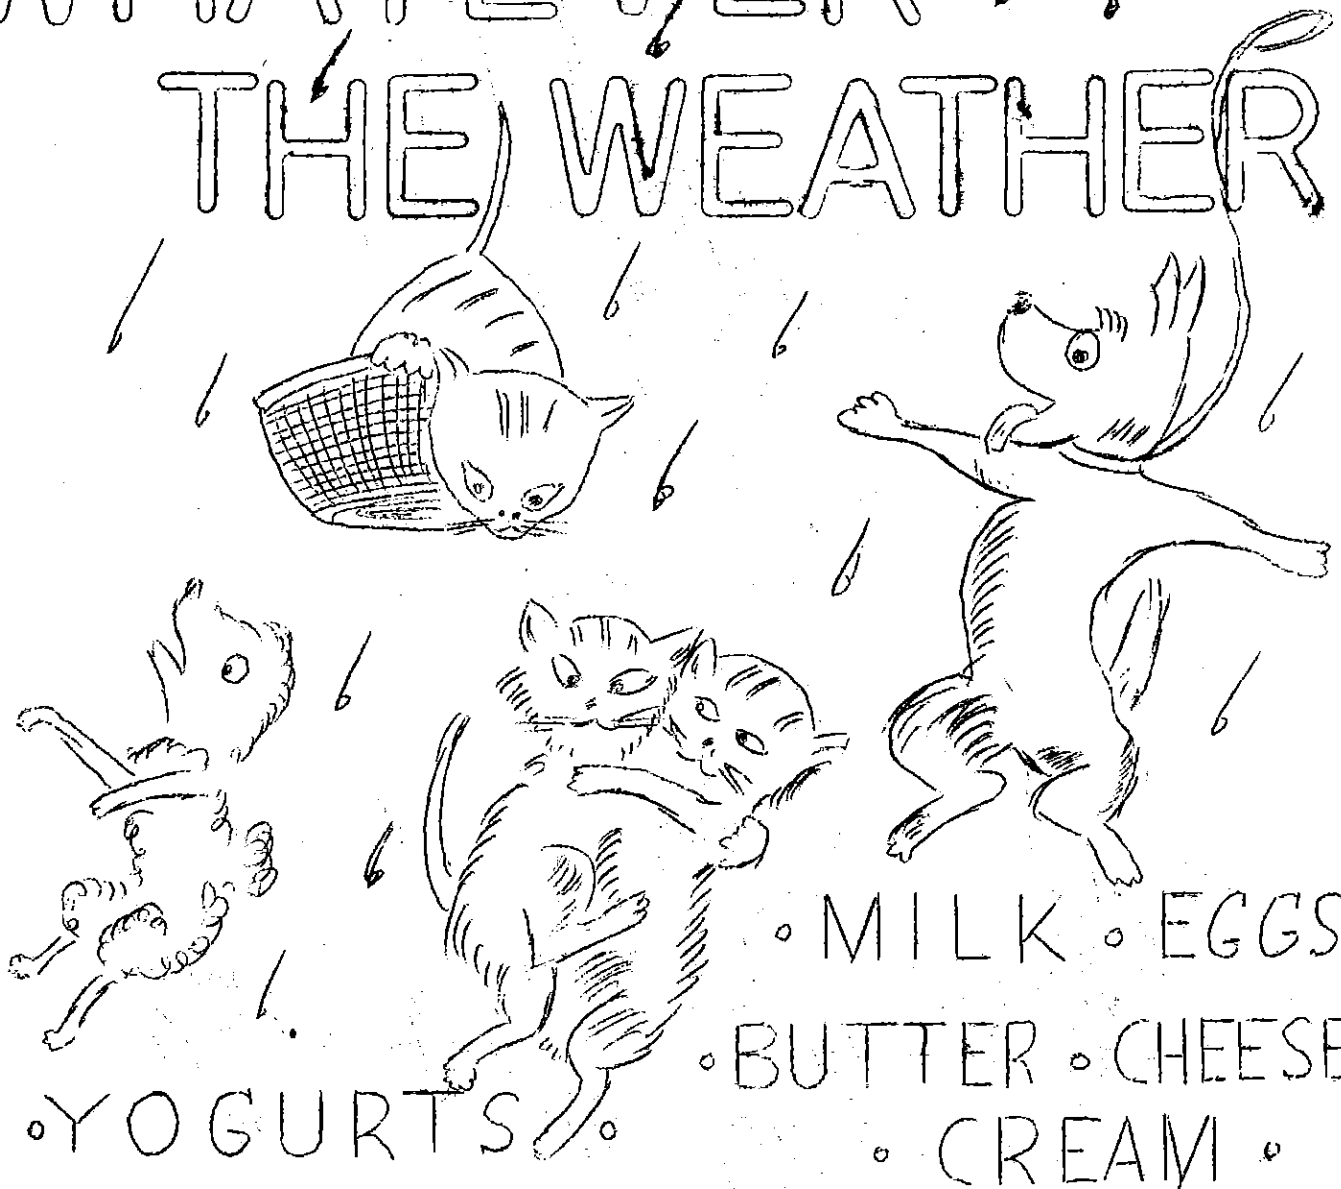 WHATEVER
THE WEATHER
• MILK • EGGS
• BUTTER • CHEESE
• YOGURTS •
• CREAM •